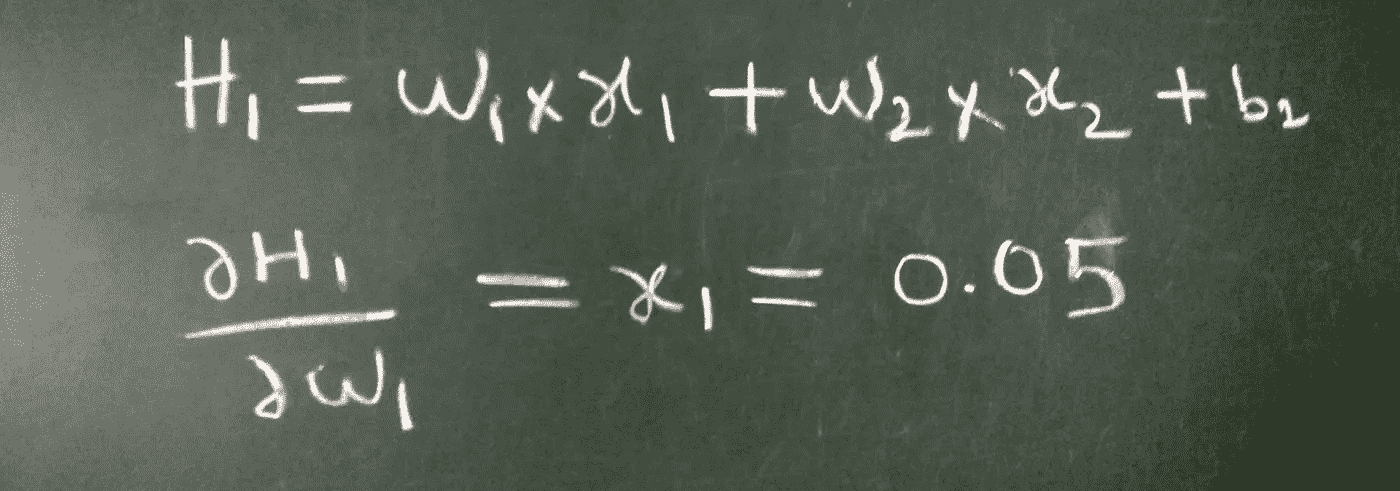 H₁ = W₁ × x₁ + W₂ × x₂ + b₂
∂H₁/∂W₁ = x₁ = 0.05